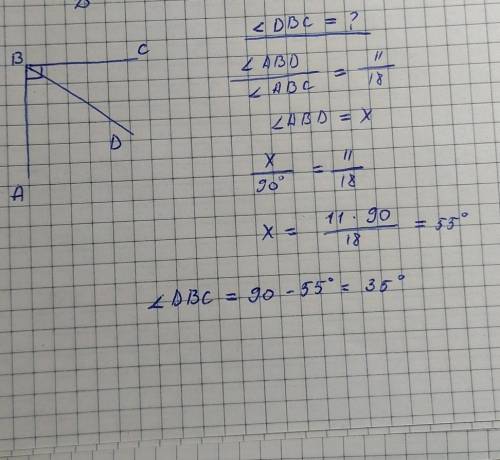 ∠DBC = ?
∠ABD / ∠ABC = 11 / 18
∠ABD = X
X / 90° = 11 / 18
X = 11 · 90 / 18 = 55°
∠DBC = 90 - 55° = 35°
B
C
D
A